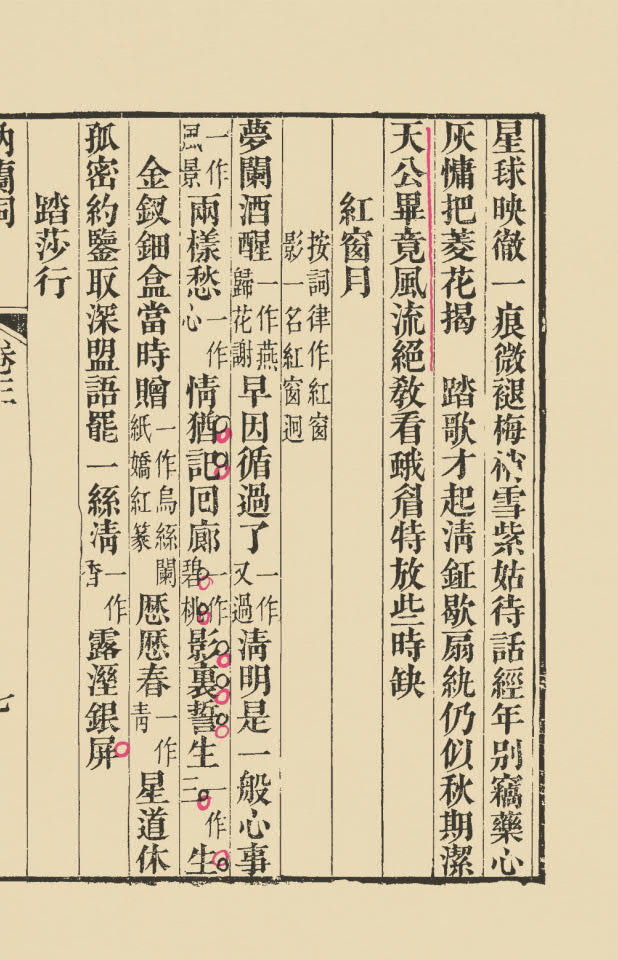 星球映徹一痕微褪梅梢雪紫姑待話經年別竊藥心
灰慵把菱花揭　踏歌才起淸鉦歇扇紈仍似秋期潔
天公畢竟風流絕敎看蛾眉特放些時缺
紅窗月
按詞律作紅窗
影一名紅窗迥
夢闌酒醒一作燕歸花謝早因循過了一作又過淸明是一般心事
一作風景兩樣愁一作心情猶記回廊一作碧桃影裏誓生一作三生
金釵鈿盒當時贈一作烏絲闌紙嬌紅篆厯厯春一作靑星道休
孤密約鑒取深盟語罷一絲淸一作香露溼銀屏
踏莎行
納蘭詞　卷三　七